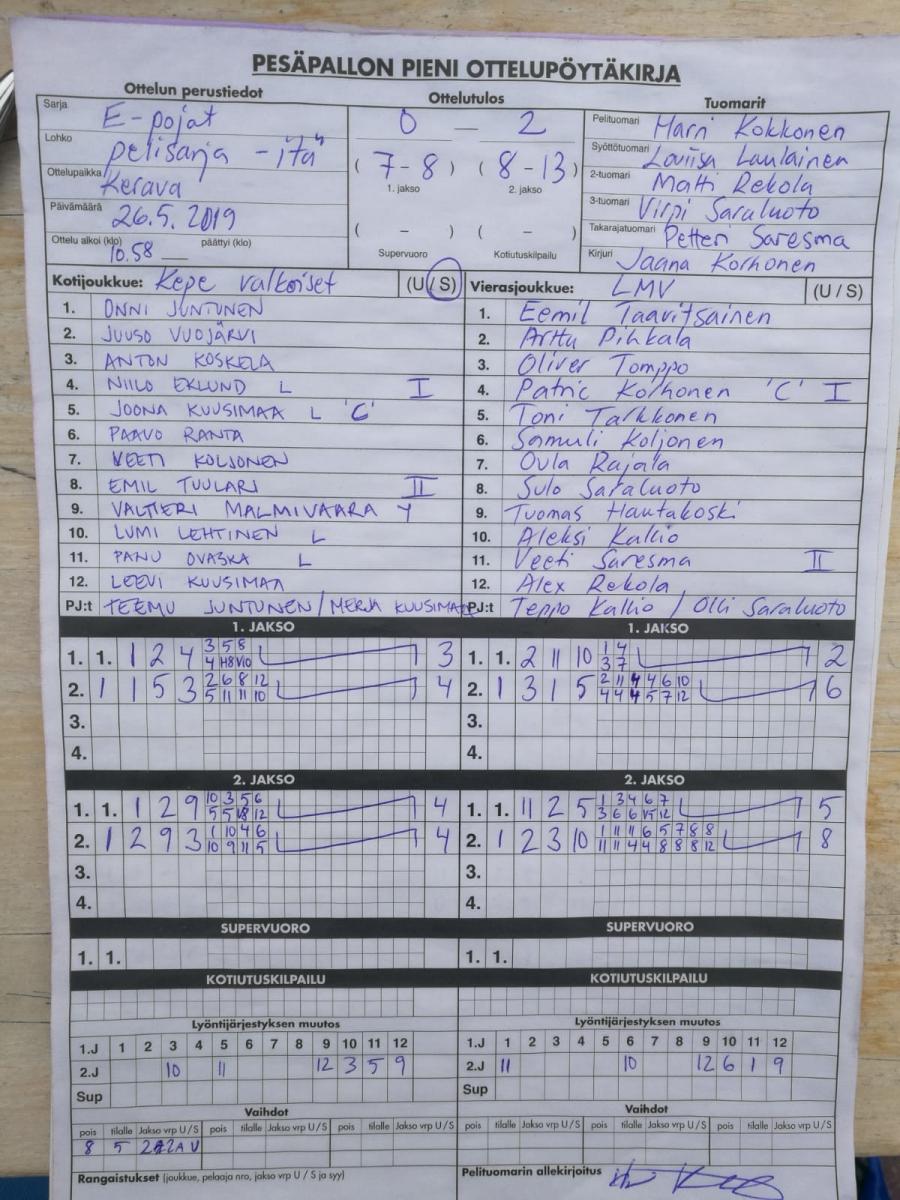 PESÄPALLON PIENI OTTELUPÖYTÄKIRJA
Ottelun perustiedot
Sarja E-pojat
Lohko pelisarja - itä
Ottelupaikka Kerava
Päivämäärä 26.5.2019
Ottelu alkoi (klo) 10.58 päättyi (klo)
Ottelutulos
0 — 2
( 7-8 ) ( 8-13 )
1. jakso 2. jakso
( - ) ( - )
Supervuoro Kotiutuskilpailu
Tuomarit
Pelituomari Harri Kokkonen
Syöttötuomari Loviisa Laulainen
2-tuomari Matti Rekola
3-tuomari Virpi Saraluoto
Takarajatuomari Petteri Saresma
Kirjuri Jaana Korhonen
Kotijoukkue: Kepe valkoiset (U / S)
1. ONNI JUNTUNEN
2. JUUSO VUOJÄRVI
3. ANTON KOSKELA
4. NIILO EKLUND L I
5. JOONA KUUSIMAA L 'C'
6. PAAVO RANTA
7. VEETI KOLJONEN
8. EMIL TUULARI II
9. VALTTERI MALMIVAARA Y
10. LUMI LEHTINEN L
11. PANU OVASKA L
12. LEEVI KUUSIMAA
PJ:t TEEMU JUNTUNEN / MERJA KUUSIMAA
Vierasjoukkue: LMV (U / S)
1. Eemil Taavitsainen
2. Arttu Pihkala
3. Oliver Tomppo
4. Patric Korhonen 'C' I
5. Toni Tarkkonen
6. Samuli Koljonen
7. Ovla Rajala
8. Sulo Saraluoto
9. Tuomas Hautakoski
10. Aleksi Kallio
11. Veeti Saresma II
12. Alex Rekola
PJ:t Teppo Kallio / Olli Saraluoto
1. JAKSO
1. 1. 1 2 4 3 5 8 3
4 H8 V10
2. 1 1 5 3 2 6 8 12 4
5 11 11 10
3.
4.
1. JAKSO
1. 1. 2 11 10 1 4 2
3 7
2. 1 3 1 5 2 11 4 4 6 10 6
4 4 4 5 7 12
3.
4.
2. JAKSO
1. 1. 1 2 9 10 3 5 6 4
5 5 8 12
2. 1 2 9 3 1 10 4 6 4
10 9 11 5
3.
4.
2. JAKSO
1. 1. 11 2 5 1 3 4 6 7 5
3 6 6 12
2. 1 2 3 10 1 11 11 6 5 7 8 8 8
11 11 4 4 8 8 8 12
3.
4.
SUPERVUORO
1. 1.
SUPERVUORO
1. 1.
KOTIUTUSKILPAILU
KOTIUTUSKILPAILU
Lyöntijärjestyksen muutos
1.J 1 2 3 4 5 6 7 8 9 10 11 12
2.J 10 11 12 3 5 9
Sup
Lyöntijärjestyksen muutos
1.J 1 2 3 4 5 6 7 8 9 10 11 12
2.J 11 10 12 6 1 9
Sup
Vaihdot
pois tilalle Jakso vrp U / S pois tilalle Jakso vrp U / S pois tilalle Jakso vrp U / S
8 5
Vaihdot
pois tilalle Jakso vrp U / S pois tilalle Jakso vrp U / S pois tilalle Jakso vrp U / S
Rangaistukset (joukkue, pelaaja nro, jakso vrp U / S ja syy)
Pelituomarin allekirjoitus